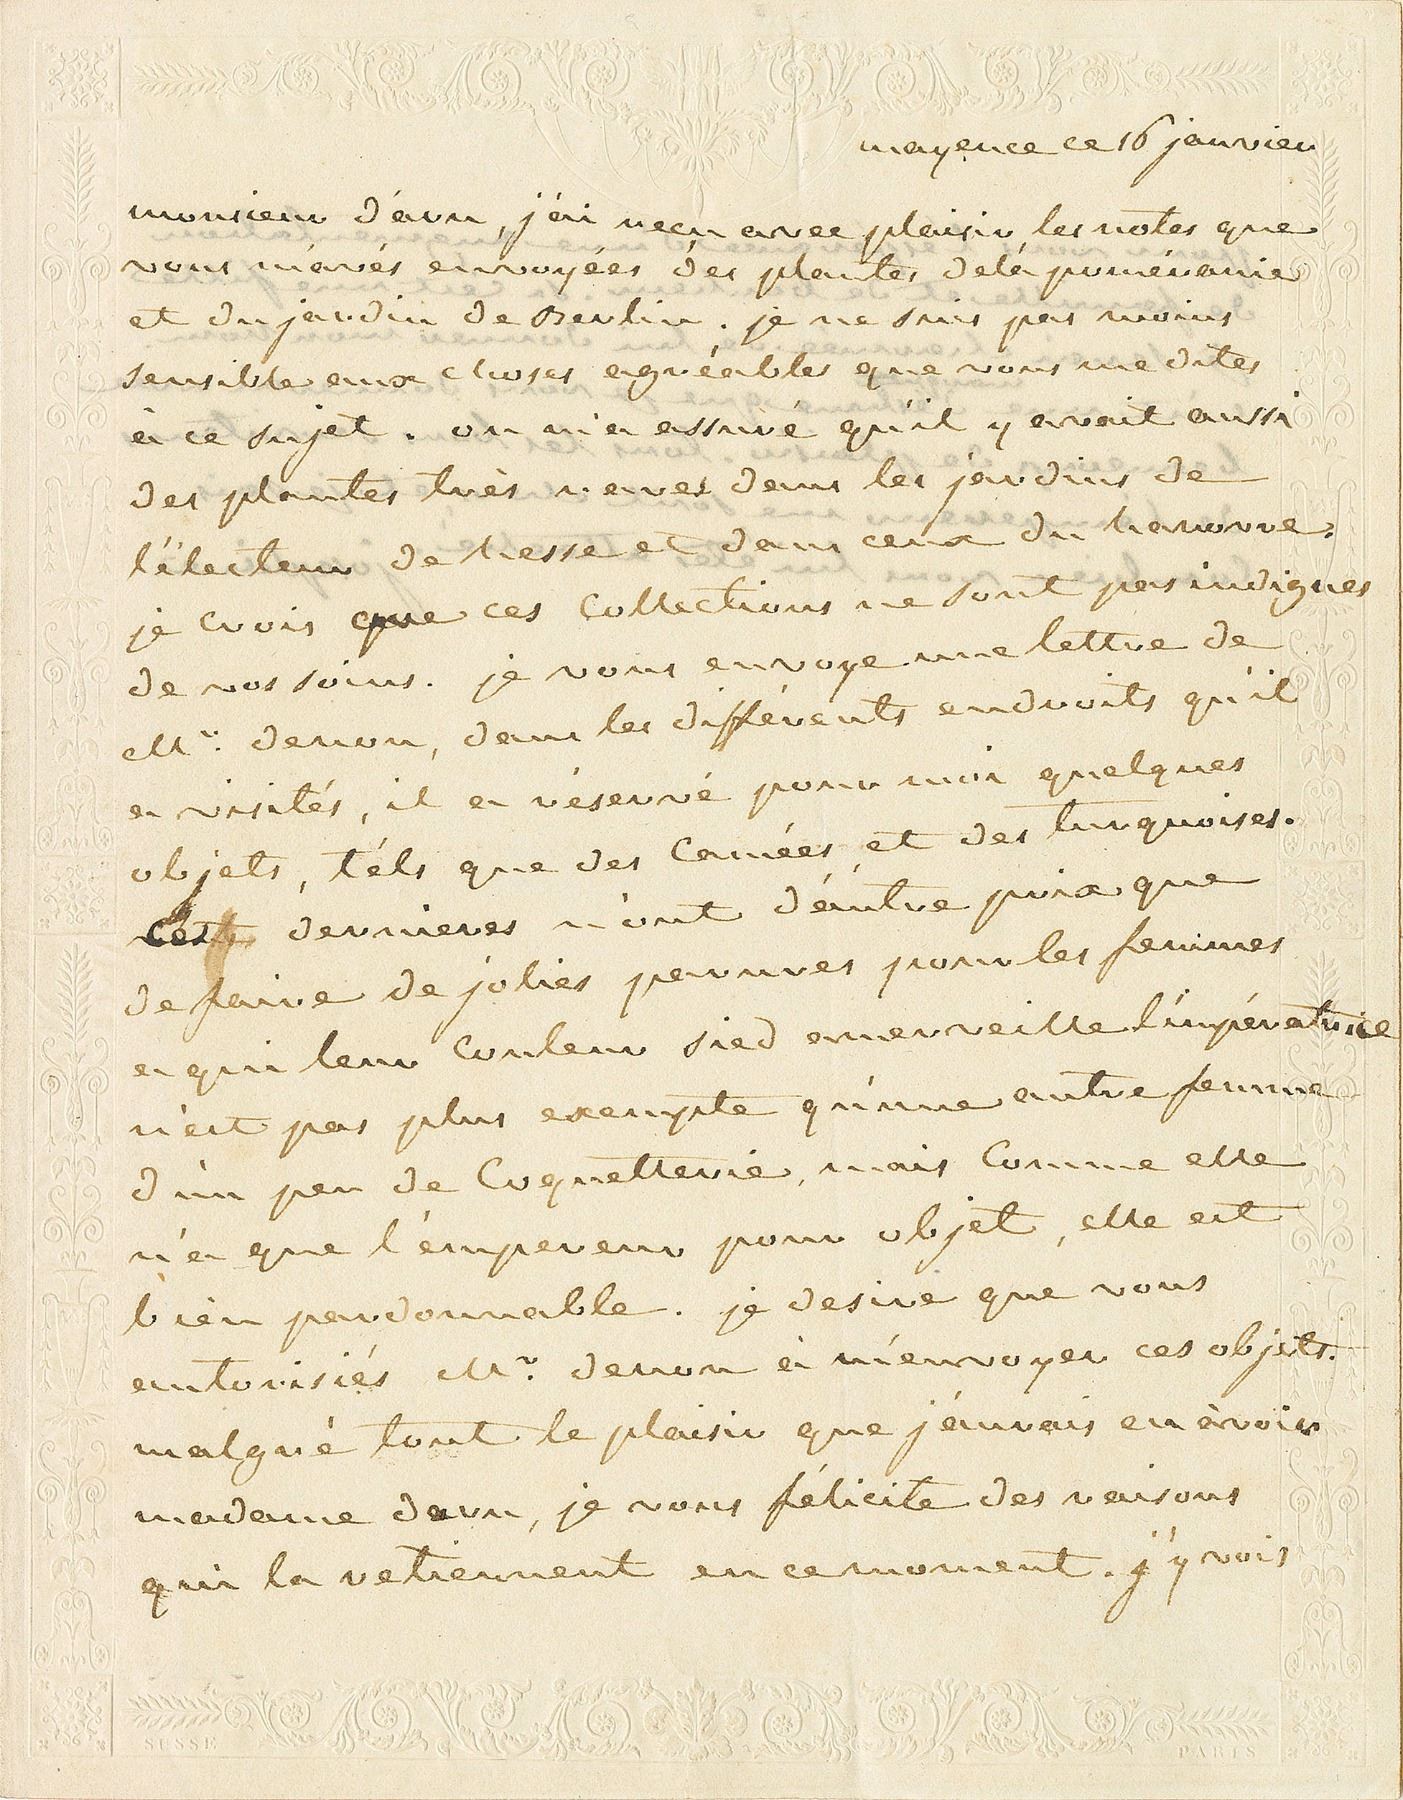 mayence ce 16 janvier
monsieur d'aru, j'ai reçu avec plaisir les notes que
vous m'avés envoyées des plantes dela poméranie
et du jardin de Berlin. je ne suis pas moins
sensible aux choses agréables que vous me dites
à ce sujet. on m'a assuré qu'il y avait aussi
des plantes très rares dans les jardins de
l'électeur de hesse et dans ceux du hanovre.
je crois que ces collections ne sont pas indignes
de vos soins. je vous envoye une lettre de
Mr. denon, dans les différents endroits qu'il
a visités, il a réservé pour moi quelques
objets, téls que des Camées et des turquoises.
Ces dernieres n'ont d'áutre prix que
de faire de jolies parures pour les femmes
a qui leur Couleur sied amerveille l'impératrice
n'est pas plus exempte qu'une autre femme
d'un peu de Coquetterie, mais Comme elle
n'a que l'émpereur pour objet, elle est
bien pardonnable. je desire que vous
autorisiés Mr. denon à m'envoyer ces objets.
malgré tout le plaisir que j'áurais en avoir
madame daru, je vous félicite des raisons
qui la retiennent en ce moment. j'y vois
SUSSE
PARIS